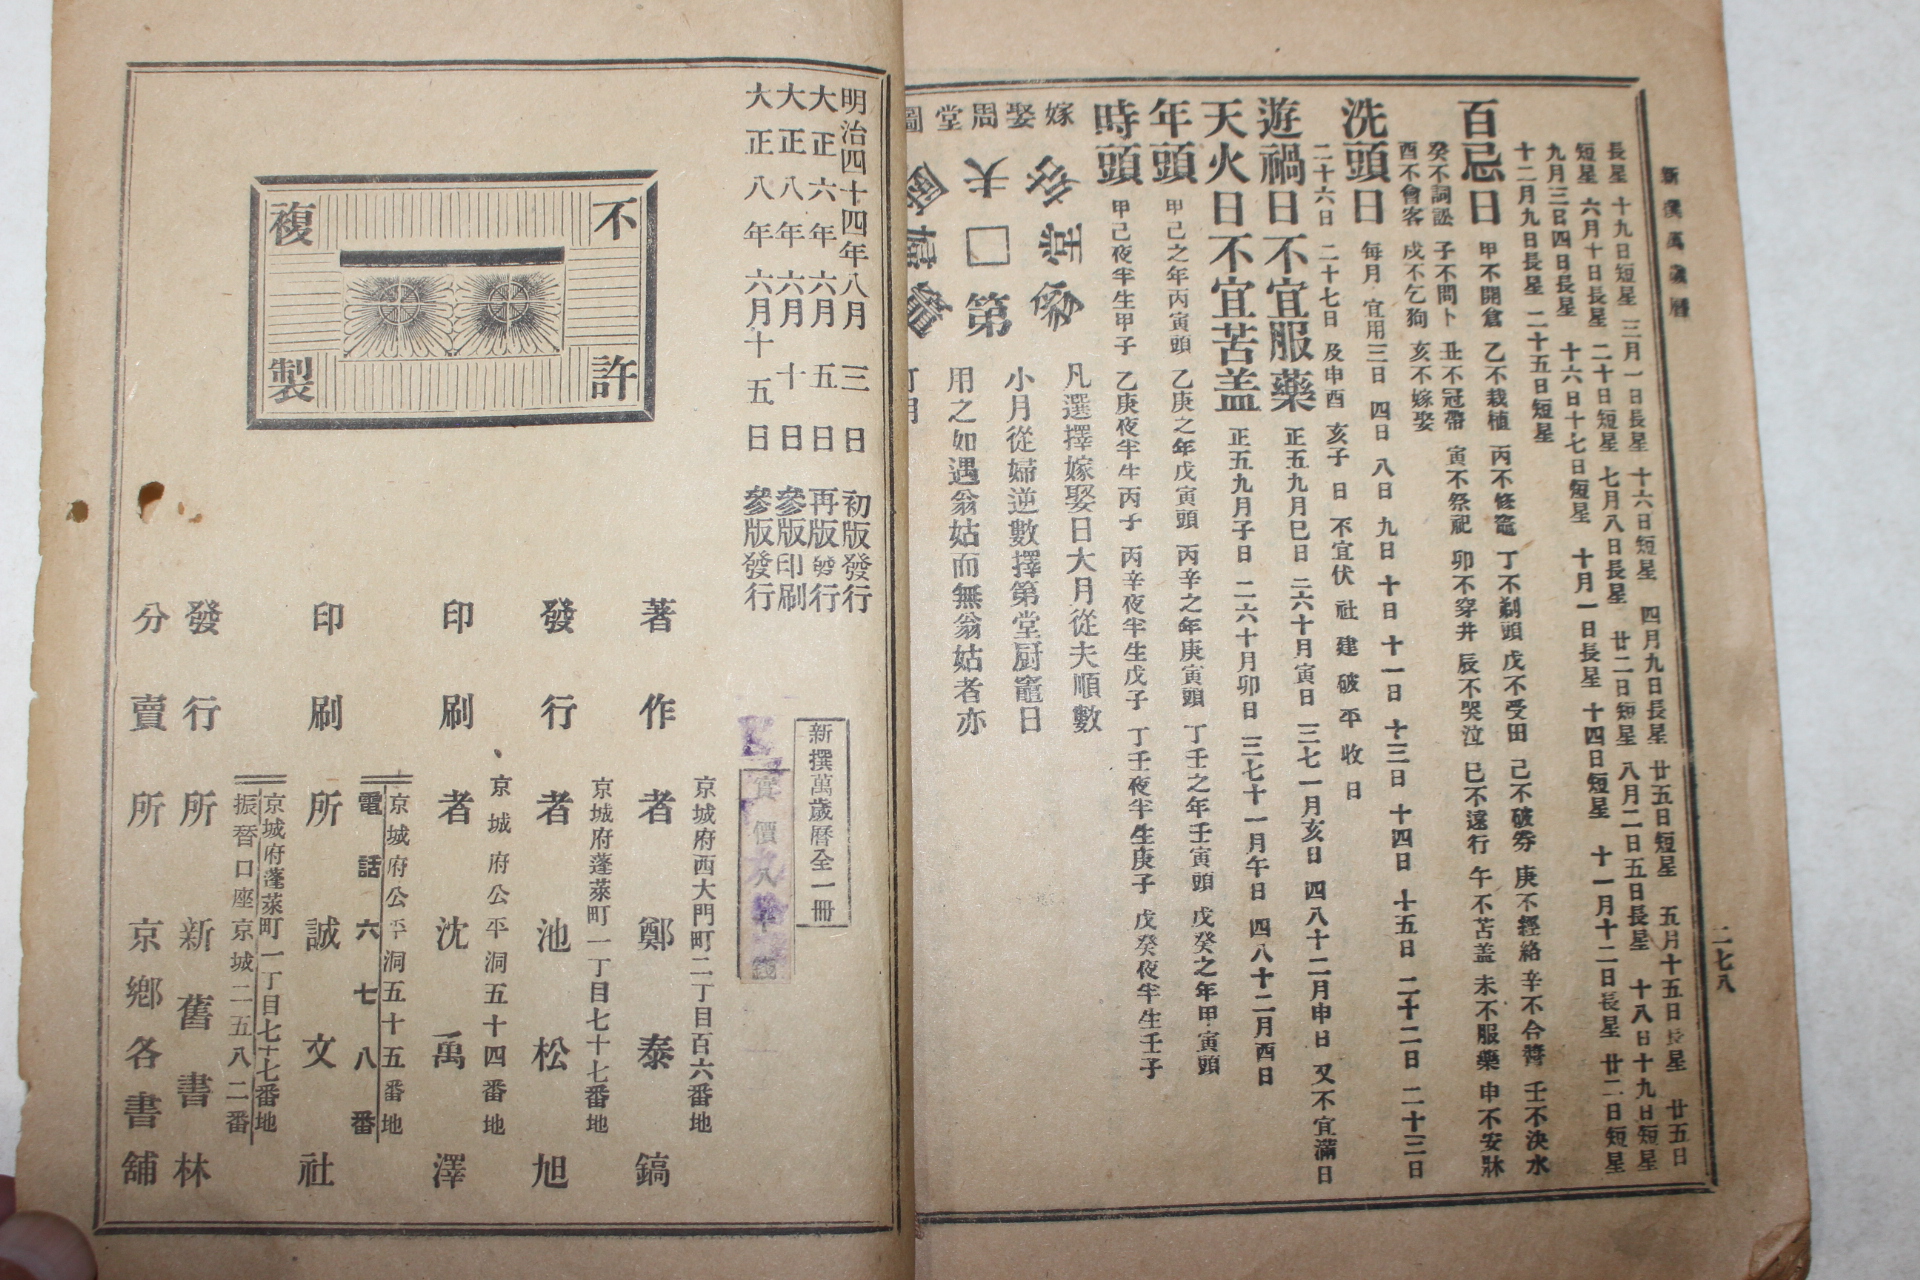 新撰萬歲曆
二七八
長星 十九日短星 三月一日長星 十六日短星 四月九日長星 廿五日短星 五月十五日長星 廿五日
短星 六月十日長星 二十日短星 七月八日長星 廿二日短星 八月二日五日長星 十八日十九日短星
九月三日四日長星 十六日十七日短星 十月一日長星 十四日短星 十一月十二日長星 廿二日短星
十二月九日長星 二十五日短星
百忌日 甲不開倉 乙不栽植 丙不修竈 丁不剃頭 戊不受田 己不破券 庚不經絡 辛不合醬 壬不決水
癸不詞訟 子不問卜 丑不冠帶 寅不祭祀 卯不穿井 辰不哭泣 巳不遠行 午不苫盖 未不服藥 申不安牀
酉不會客 戌不乞狗 亥不嫁娶
洗頭日 每月 宜用三日 四日 八日 九日 十日 十一日 十三日 十四日 十五日 二十二日 二十三日
二十六日 二十七日 及申酉 亥子 日 不宜伏 社 建 破 平 收 日
遊禍日不宜服藥 正五九月巳日 二六十月寅日 三七一月亥日 四八十二月申日 又不宜滿日
天火日不宜苫盖 正五九月子日 二六十月卯日 三七十一月午日 四八十二月酉日
年頭 甲己之年丙寅頭 乙庚之年戊寅頭 丙辛之年庚寅頭 丁壬之年壬寅頭 戊癸之年甲寅頭
時頭 甲己夜半生甲子 乙庚夜半生丙子 丙辛夜半生戊子 丁壬夜半生庚子 戊癸夜半生壬子
嫁娶周堂圖
姑 堂 翁
夫 第
凡選擇嫁娶日大月從夫順數
小月從婦逆數擇第堂厨竈日
用之如遇翁姑而無翁姑者亦
可用
明治四十四年八月三日 初版發行
大正六年六月五日 再版發行
大正八年六月十日 參版印刷
大正八年六月十五日 參版發行
不許複製
新撰萬歲曆全一冊
實價
京城府西大門町二丁目百六番地
著作者 鄭泰鎬
京城府蓬萊町一丁目七十七番地
發行者 池松旭
京城府公平洞五十四番地
印刷者 沈禹澤
京城府公平洞五十五番地
電話六七八番
印刷所 誠文社
京城府蓬萊町一丁目七十七番地
振替口座京城二五八二番
發行所 新舊書林
分賣所 京鄕各書舖